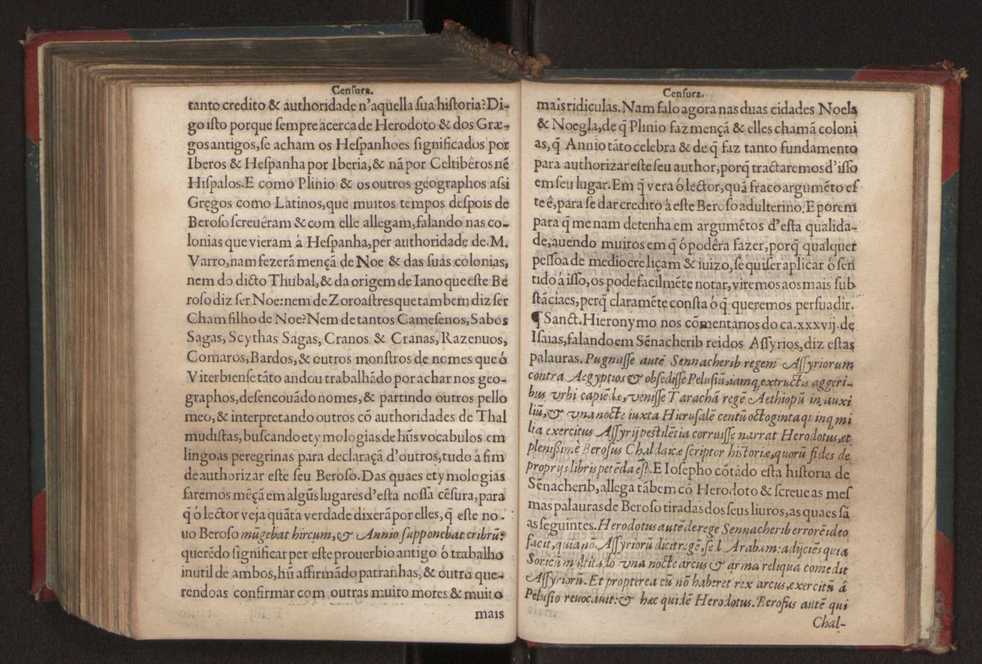 Censura.
tanto credito & authoridade n'aquella sua historia? Di-
go isto porque sempre àcerca de Herodoto & dos Græ-
gos antigos, se acham os Hespanhoes significados por
Iberos & Hespanha por Iberia, & nã por Celtibêros nẽ
Hispalos. E como Plinio & os outros geographos assi
Gręgos como Latinos, que muitos tempos despois de
Beroso screuêram & com elle allegam, falando nas co-
lonias que vieram à Hespanha, per authoridade de. M.
Varro, nam fezerã mençã de Noe & das suas colonias,
nem do dicto Thubal, & da origem de Iano que este Be
roso diz ser Noe: nem de Zoroastres que tambem diz ser
Cham filho de Noe? Nem de tantos Camesenos, Sabos
Sagas, Scythas Sagas, Cranos & Cranas, Razenuos,
Comaros, Bardos, & outros monstros de nomes que ó
Viterbiense tãto andou trabalhãdo por achar nos geo-
graphos, desencouãdo nomes, & partindo outros pello
meo, & interpretando outros cõ authoridades de Thal
mudistas, buscando etymologias de hũs vocabulos em
lingoas peregrinas para declaraçã d'outros, tudo à fim
de authorizar este seu Beroso. Das quaes etymologias
faremos mẽçã em algũs lugares d'esta nossa cẽsura, para
q̃ ó lector veja quãta verdade dixerã por elles, q̃ este no-
uo Beroso mũgebat hircum, & Annio supponebat cribrũ:
querẽdo significar per este prouerbio antigo ó trabalho
inutil de ambos, hũ affirmãdo patranhas, & outro que-
rendo as confirmar com outras muito mores & muito
mais
Censura.
mais ridiculas. Nam falo agora nas duas cidades Noela
& Noegla, de q̃ Plinio faz mençã & elles chamã coloni
as, q̃ Annio tãto celebra & de q̃ faz tanto fundamento
para authorizar este seu author, porq̃ tractaremos d'isso
em seu lugar. Em q̃ vera ó lector, quã fraco argumẽto es
te ê, para se dar credito à este Beroso adulterino. E porem
para q̃ me nam detenha em argumẽtos d'esta qualida-
de, auendo muitos em q̃ ó podêra fazer, porq̃ qualquer
pessoa de mediocre liçam & iuizo, se quiser aplicar ó sen
tido à isso, os pode facilmẽte notar, viremos aos mais sub
stãciaes, perq̃ claramẽte consta ó q̃ queremos persuadir.
¶ Sanct. Hieronymo nos cõmentarios do ca. xxxvij. de
Isaias, falando em Sẽnacherib rei dos Assyrios, diz estas
palauras. Pugnasse autẽ Sennacherib regem Assyriorum
contra Aegyptios & obsedisse Pelusiũ, iamq̃ extructis aggeri-
bus vrbi capiẽdę, venisse Taracha regẽ Aethiopũ in auxi
liũ, & vna nocte iuxta Hierusalẽ centũ octoginta quinq̃ mi
lia exercitus Assyrij pestilẽtia corruisse narrat Herodotus, et
plenissime Berosus Chaldaicæ scriptor historiæ, quorũ fides de
proprijs libris petẽda est. E Iosepho cõtãdo esta historia de
Sẽnacherib, allega tãbem cõ Herodoto & screue as mes
mas palauras de Beroso tiradas dos seus liuros, as quaes sã
as seguĩntes. Herodotus autẽ de rege Sennacherib errorẽ ideo
facit, quia nõ Assyriorũ dicit regẽ, sed Arabum: adijciẽs quia
Soricum multitudo vna nocte arcus & arma reliqua comedit
Assyriorũ. Et propterea cũ nõ haberet rex arcus, exercitũ à
Pelusio reuocauit: & hæc quidẽ Herodotus. Berosus autẽ qui
Chal-